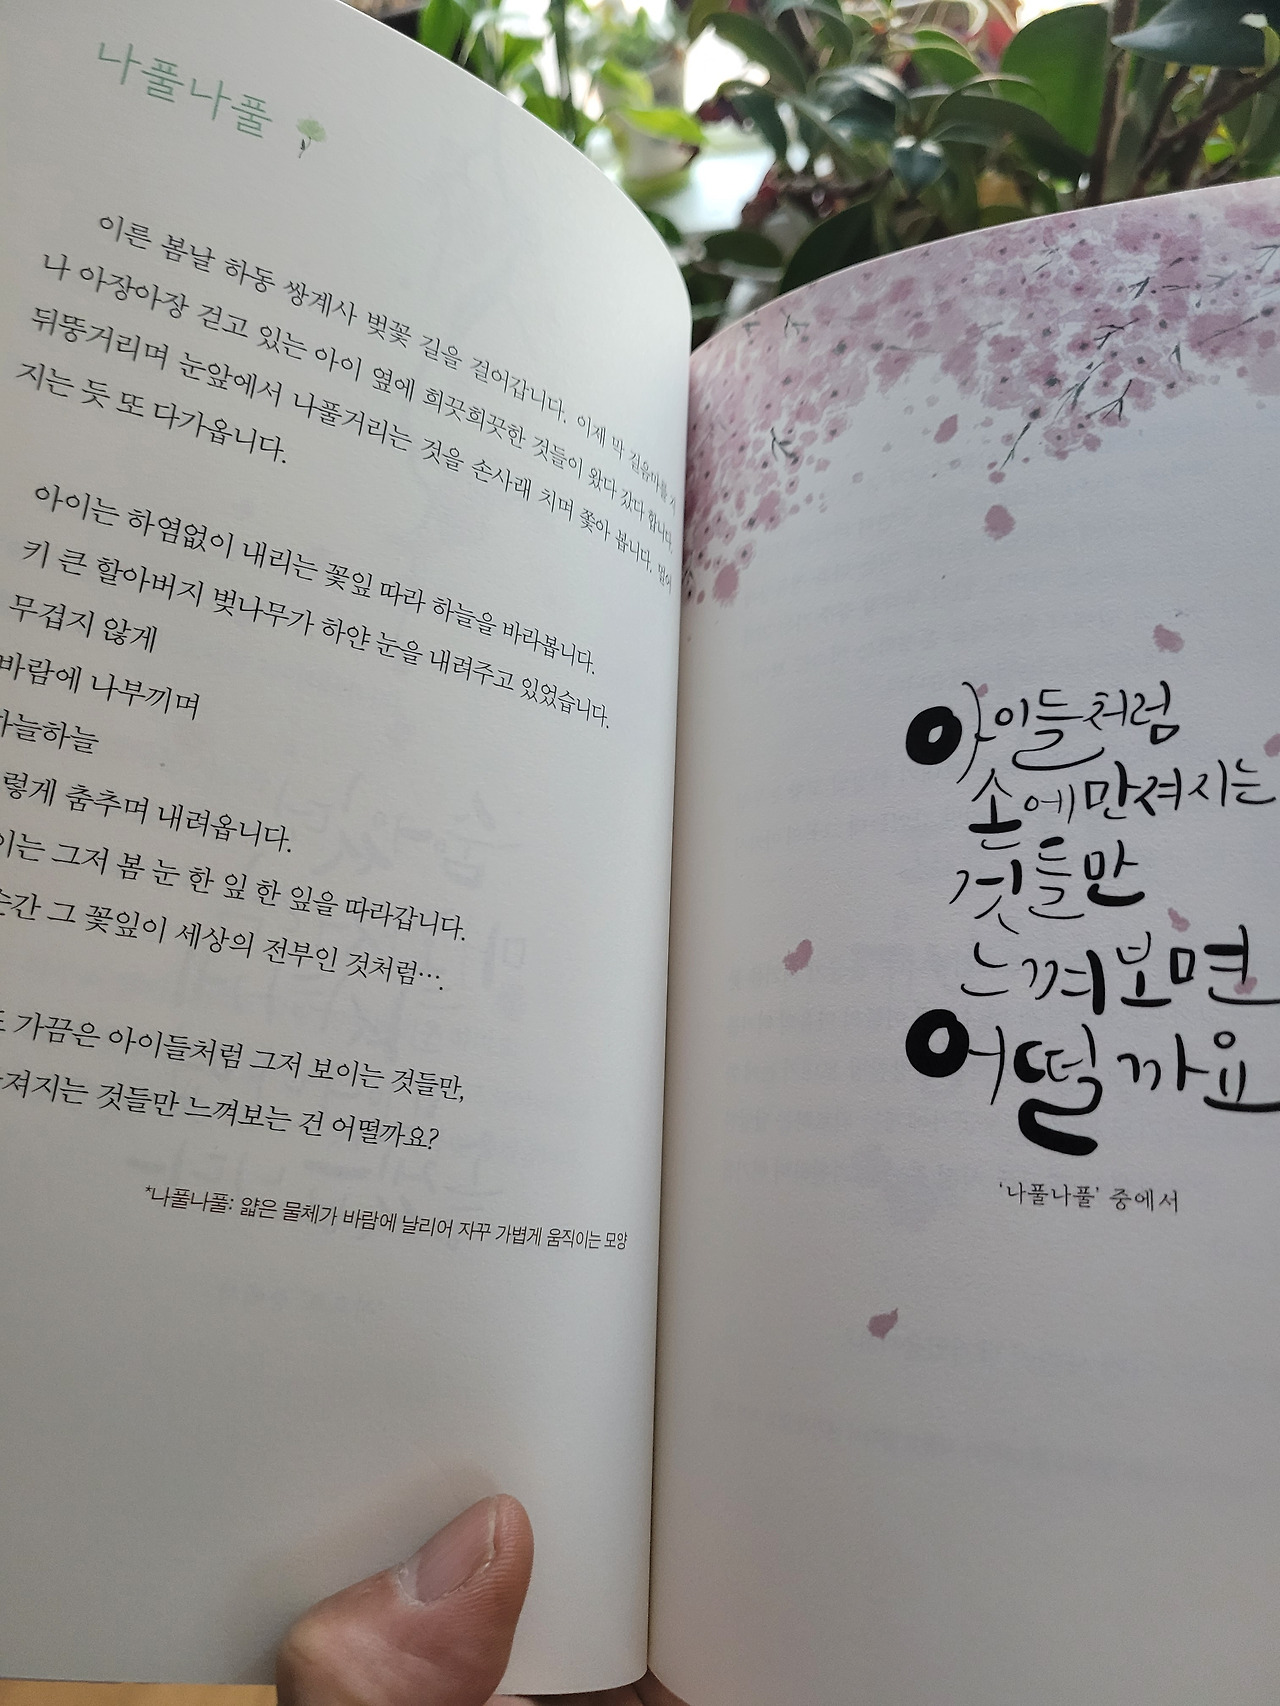 나풀나풀
이른 봄날 하동 쌍계사 벚꽃 길을 걸어갑니다. 이제 막 걸음마를 시
나 아장아장 걷고 있는 아이 옆에 희끗희끗한 것들이 왔다 갔다 합니다.
뒤뚱거리며 눈앞에서 나풀거리는 것을 손사래 치며 쫓아 봅니다. 멀어
지는 듯 또 다가옵니다.
아이는 하염없이 내리는 꽃잎 따라 하늘을 바라봅니다.
키 큰 할아버지 벚나무가 하얀 눈을 내려주고 있었습니다.
무겁지 않게
바람에 나부끼며
하늘하늘
렇게 춤추며 내려옵니다.
이는 그저 봄 눈 한 잎 한 잎을 따라갑니다.
순간 그 꽃잎이 세상의 전부인 것처럼….
가끔은 아이들처럼 그저 보이는 것들만,
져지는 것들만 느껴보는 건 어떨까요?
*나풀나풀: 얇은 물체가 바람에 날리어 자꾸 가볍게 움직이는 모양
아이들처럼
손에 만져지는
것들만
느껴보면
어떨까요
‘나풀나풀’ 중에서